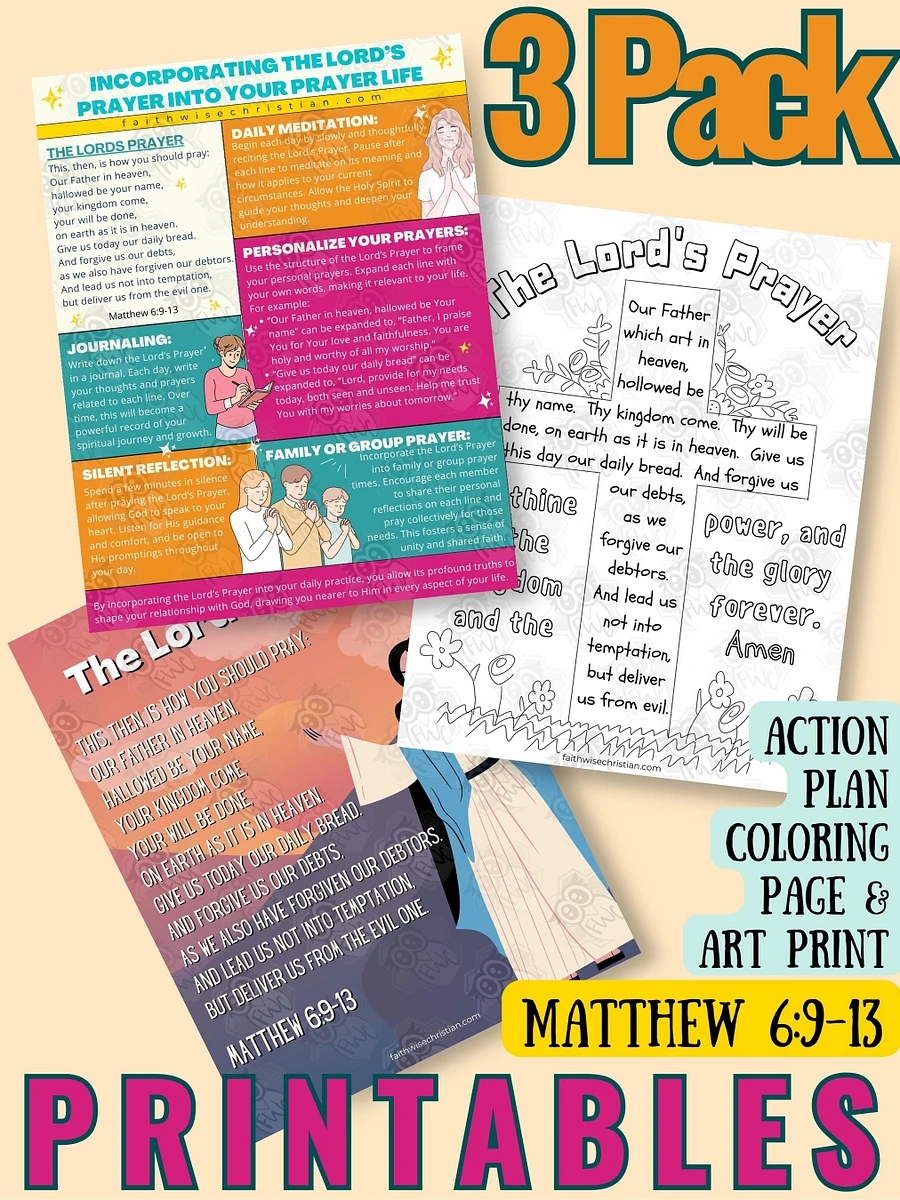 3 Pack
INCORPORATING THE LORD'S
PRAYER INTO YOUR PRAYER LIFE
faithwisechristian.com
THE LORDS PRAYER
This, then, is how you should pray:
Our Father in heaven,
hallowed be your name,
your kingdom come,
your will be done,
on earth as it is in heaven.
Give us today our daily bread.
And forgive us our debts,
as we also have forgiven our debtors.
And lead us not into temptation,
but deliver us from the evil one.
Matthew 6:9-13
DAILY MEDITATION:
Begin each day by slowly and thoughtfully
reciting the Lord's Prayer. Pause after
each line to meditate on its meaning and
how it applies to your current
circumstances. Allow the Holy Spirit to
guide your thoughts and deepen your
understanding.
PERSONALIZE YOUR PRAYERS:
Use the structure of the Lord's Prayer to frame
your personal prayers. Expand each line with
your own words, making it relevant to your life.
For example:
• "Our Father in heaven, hallowed be Your
name" can be expanded to, "Father, I praise
You for Your love and faithfulness. You are
holy and worthy of all my worship."
• "Give us today our daily bread" can be
expanded to, "Lord, provide for my needs
today, both seen and unseen. Help me trust
You with my worries about tomorrow."
JOURNALING:
Write down the Lord's Prayer
in a journal. Each day, write
your thoughts and prayers
related to each line. Over
time, this will become a
powerful record of your
spiritual journey and growth.
SILENT REFLECTION:
Spend a few minutes in silence
after praying the Lord's Prayer,
allowing God to speak to your
heart. Listen for His guidance
and comfort, and be open to
His promptings throughout
your day.
FAMILY OR GROUP PRAYER:
Incorporate the Lord's Prayer
into family or group prayer
times. Encourage each member
to share their personal
reflections on each line and
pray collectively for those
needs. This fosters a sense of
unity and shared faith.
By incorporating the Lord's Prayer into your daily practice, you allow its profound truths to
shape your relationship with God, drawing you nearer to Him in every aspect of your life.
The Lord's Prayer
Our Father
which art in
heaven,
hollowed be
thy name. Thy kingdom come. Thy will be
done, on earth as it is in heaven. Give us
this day our daily bread. And forgive us
our debts,
as we
forgive our
debtors.
And lead us
not into
temptation,
but deliver
us from evil.
thine
the
and the
power, and
the glory
forever.
Amen
faithwisechristian.com
The Lord
THIS, THEN, IS HOW YOU SHOULD PRAY:
OUR FATHER IN HEAVEN,
HALLOWED BE YOUR NAME,
YOUR KINGDOM COME,
YOUR WILL BE DONE,
ON EARTH AS IT IS IN HEAVEN.
GIVE US TODAY OUR DAILY BREAD.
AND FORGIVE US OUR DEBTS,
AS WE ALSO HAVE FORGIVEN OUR DEBTORS.
AND LEAD US NOT INTO TEMPTATION,
BUT DELIVER US FROM THE EVIL ONE.
MATTHEW 6:9-13
faithwisechristian.com
ACTION
PLAN
COLORING
PAGE &
ART PRINT
MATTHEW 6:9-13
PRINTABLES